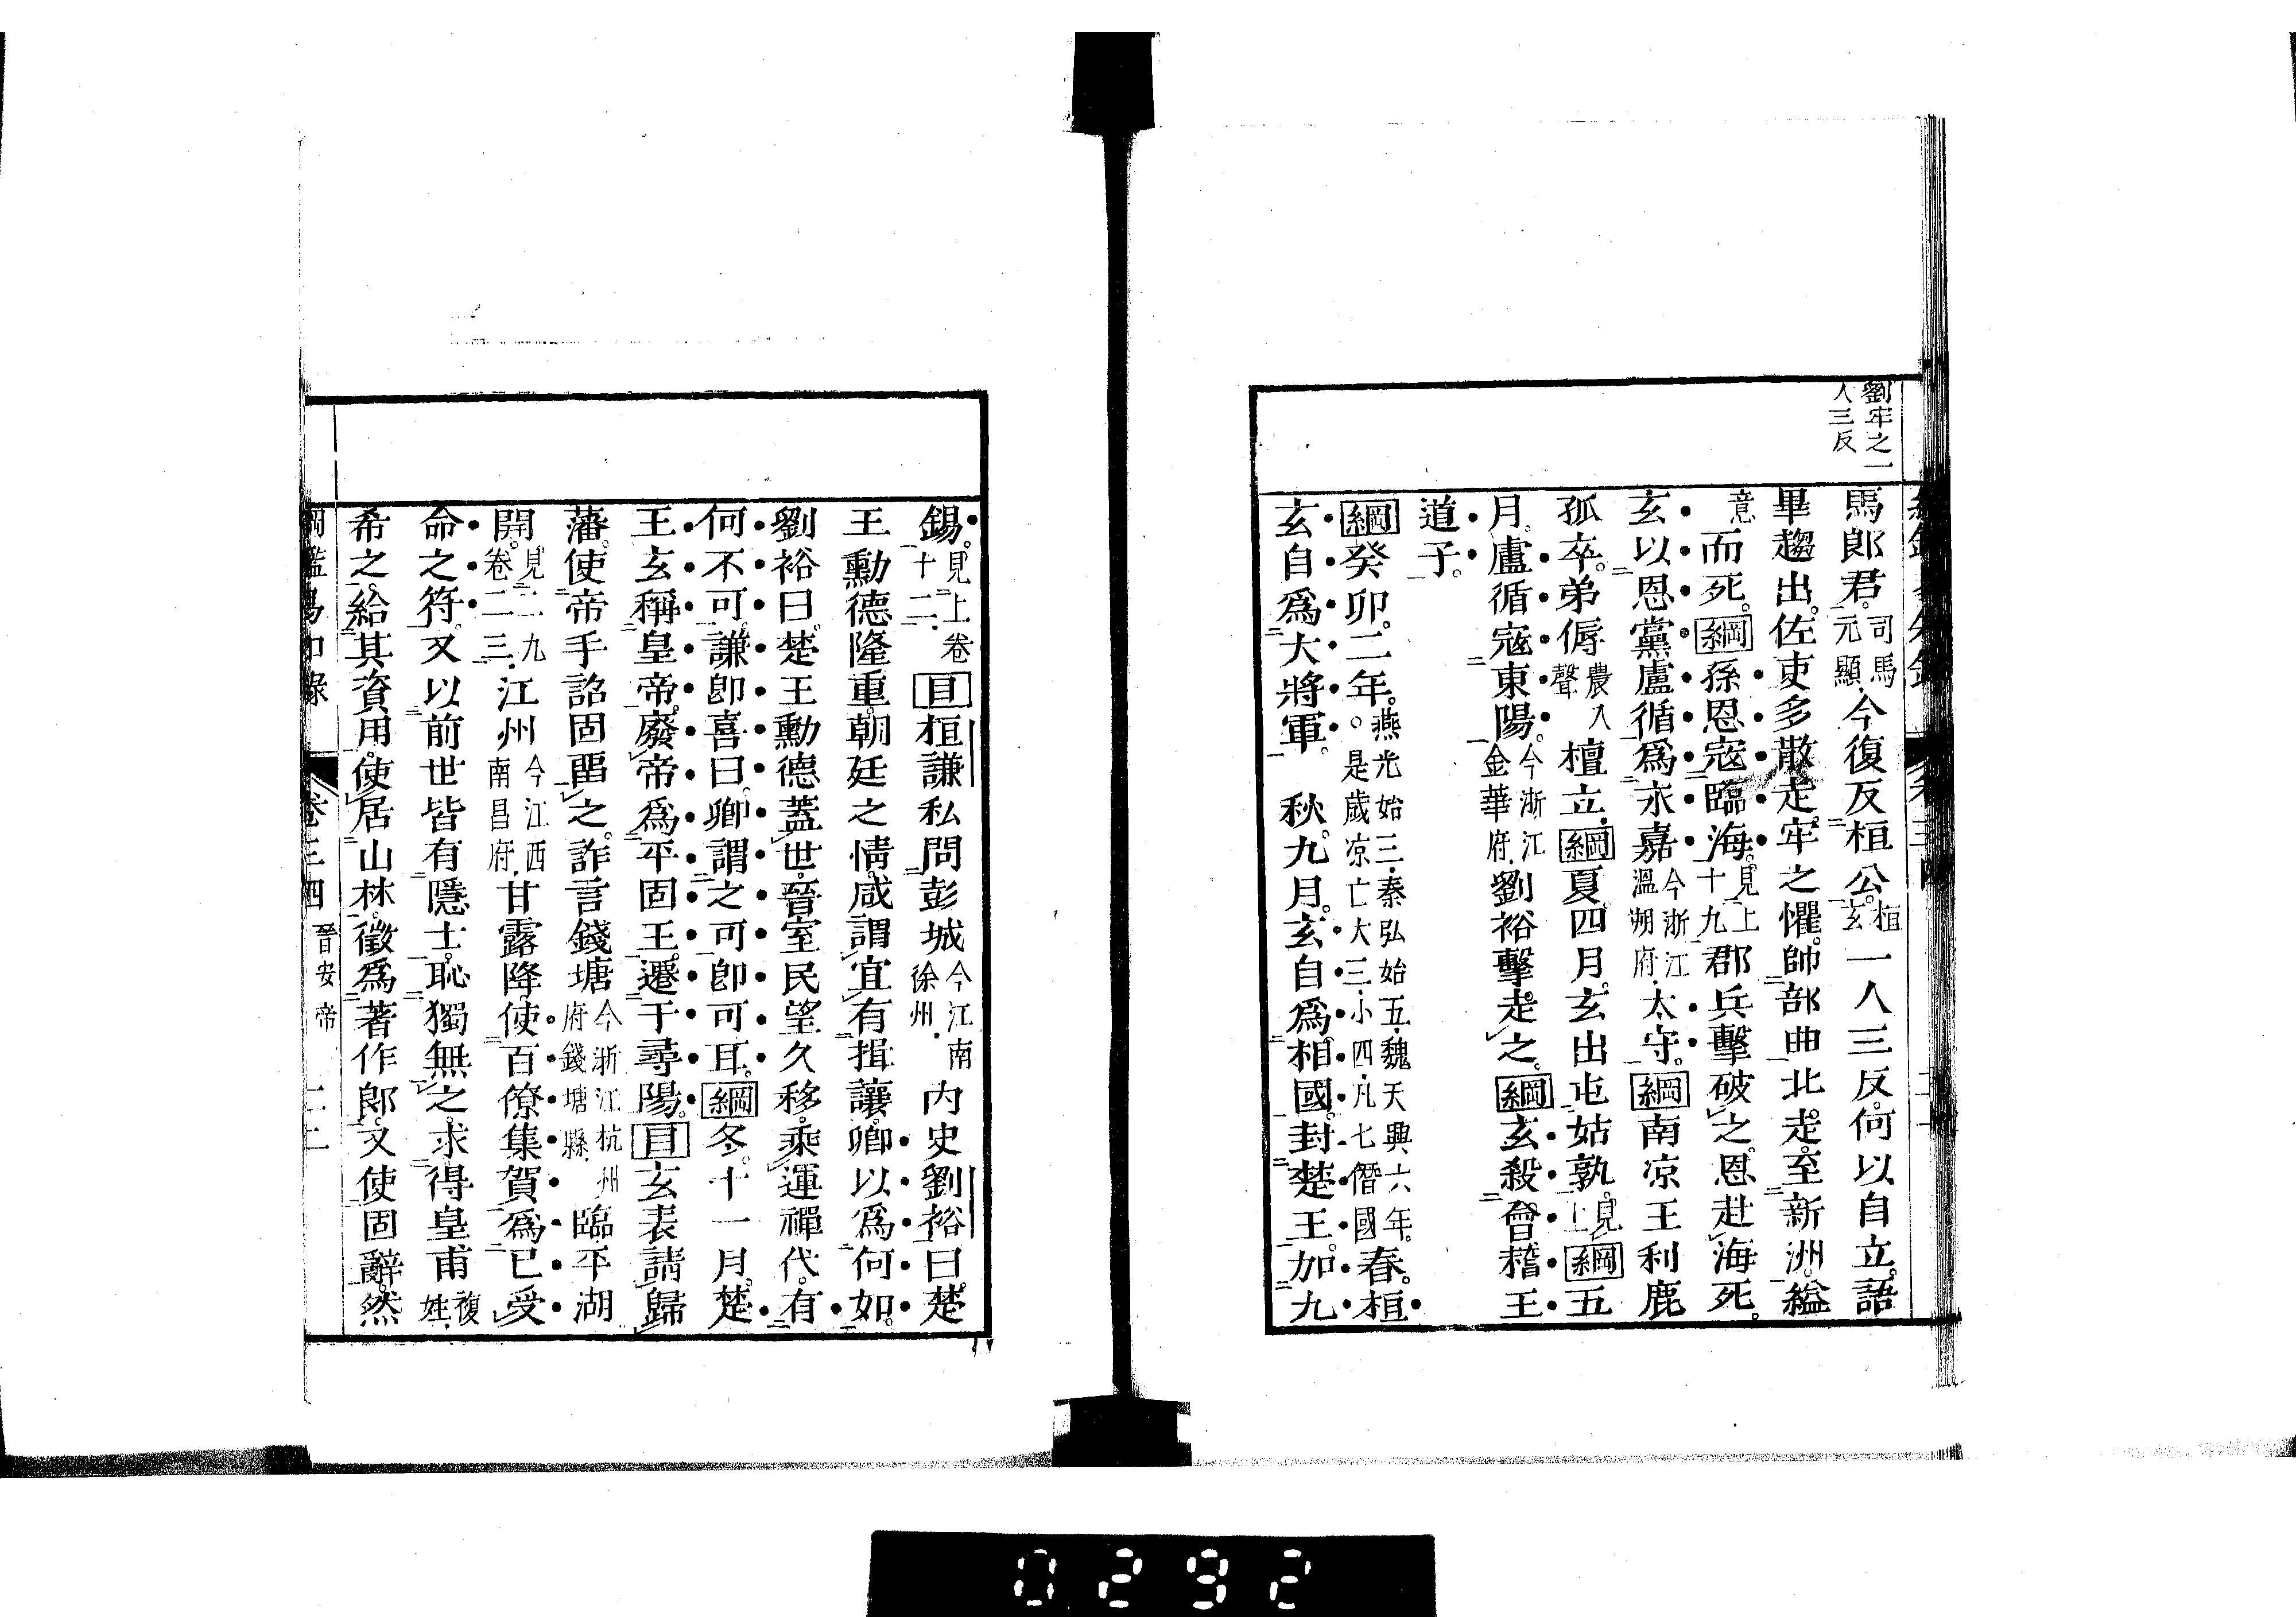 劉牢之一
人三反
馬郎君。司馬元顯。今復反桓公。桓玄一人三反。何以自立。語
畢趨出。佐吏多散走。牢之懼。帥部曲北走。至新洲。縊
意而死。綱孫恩寇臨海。見上十九郡兵擊破之。恩赴海死。
玄以恩黨盧循爲永嘉今浙江溫州府太守。綱南凉王利鹿
孤卒。弟傉農入聲檀立。綱夏。四月。玄出屯姑孰。見上綱五
月。盧循寇東陽。今浙江金華府。劉裕擊走之。綱玄殺會稽王
道子。
綱癸卯。二年。燕光始三。秦弘始五。魏天興六年。○是歲凉亡大三。小四。凡七僭國春。桓
玄自爲大將軍。秋。九月。玄自爲相國。封楚王。加九
錫。見上卷十二。目桓謙私問彭城今江南徐州。內史劉裕曰。楚
王勳德隆重。朝廷之情。咸謂宜有揖讓。卿以爲何如。
劉裕曰。楚王勳德蓋世。晉室民望久移。乘運禪代。有
何不可。謙卽喜曰。卿謂之可。卽可耳。綱冬。十一月。楚
王玄稱皇帝。廢帝爲平固王。遷于尋陽。目玄表請歸
藩。使帝手詔固畱之。詐言錢塘今浙江杭州府錢塘縣。臨平湖
開。見二九卷二三。江州今江西南昌府。甘露降。使百僚集賀。爲已受
命之符。又以前世皆有隱士。恥獨無之。求得皇甫複姓。
希之。給其資用。使居山林。徵爲著作郞。又使固辭。然
卷三四 晉安帝
0292